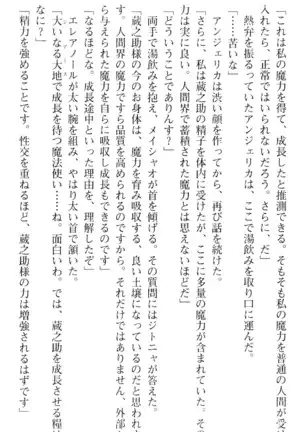 「これは私の魔力を得て、成長したと推測できる。そもそも私の魔力を普通の人間が受け
入れたら、正常ではいられないだろう。さらに、だ」
熱弁を振るっていたアンジェリカは、ここで湯飲みを取り口に運んだ。
「……苦いな」
アンジェリカは渋い顔を作ってから、再び話を続けた。
「さらに、私は蔵之助の精子を体内に受けたが、ここに多量の魔力が含まれていた。この魔
力は実に良い。人間界で蓄積された魔力とは思えないほどだ」
「どういうことでありんす？」
両手で湯飲みを抱え、メイシャオが首を傾げる。その質問にはジトニャが答えた。
「蔵之助の今のお身体は、魔力を育み吸収する、良い土壌になっているのだと思われま
す。人間界の魔力ですら品質を高められるのですから。それだけではありません、外部か
ら与えられた魔力を自らに吸収し成長もできるのです」
「なるほどな。成長途中といった理由を、理解したぞ」
エレアノールが太い腕を組み、やはり太い首で頷いた。
「大いなる大地で成長を待つ魔法使い……ね。面白いわ。では、蔵之助を成長させる糧は
なに？」
「精力を強めることです。性交を重ねるほど、蔵之助の力は増強されるはずです」